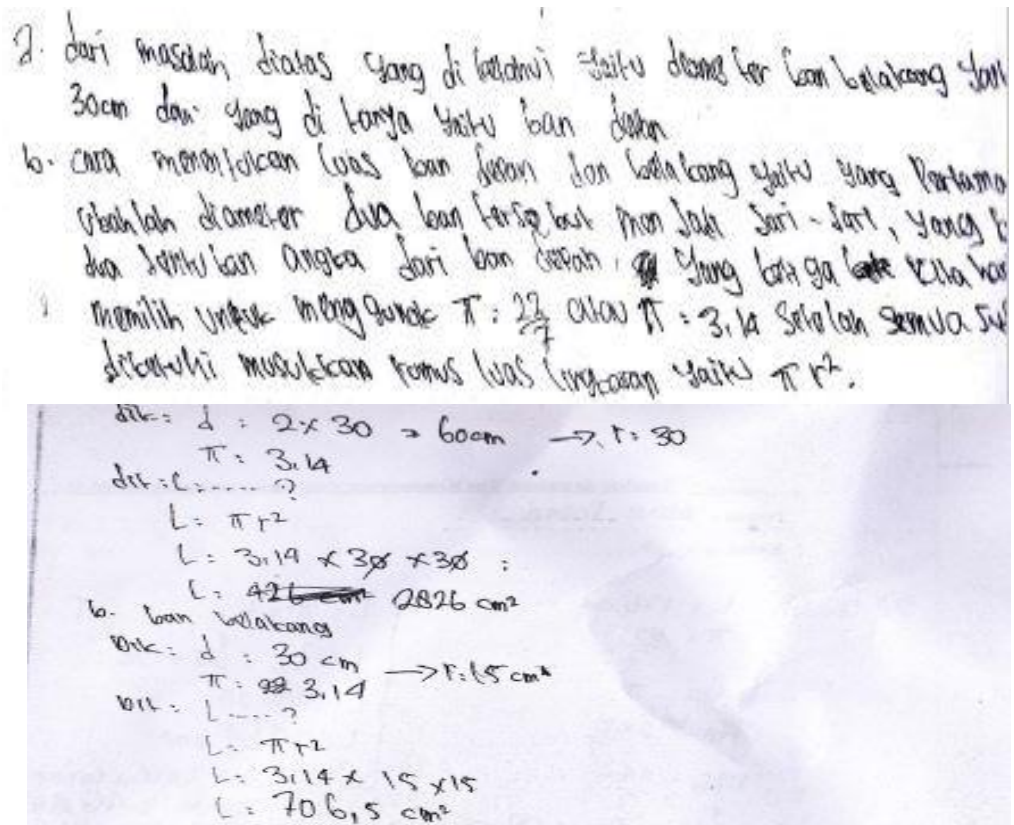 2. dari masalah diatas yang di ketahui yaitu diameter ban belakang yai
30cm dan yang di tanya yaitu ban depan
b. cara menentukan luas ban depan dan belakang yaitu yang Pertama
ubahlah diameter dua ban tersebut menjadi jari-jari, yang k
dua tentukan angka dari ban depan, yang ketiga kita har
memilih untuk menggunak π : 22/7 atau π : 3,14 setelah semua su
diketuhi masukkan rumus luas lingkaran yaitu πr².
dik: d : 2 x 30 = 60cm → r: 30
π: 3,14
dit: L.....?
L: πr²
L: 3,14 x 30 x 30 :
L: 2826 cm²
b. ban belakang
Dik: d : 30 cm → r: 15 cm
π: 3,14
Dit: L....?
L: πr²
L: 3,14 x 15 x 15
L: 706,5 cm²